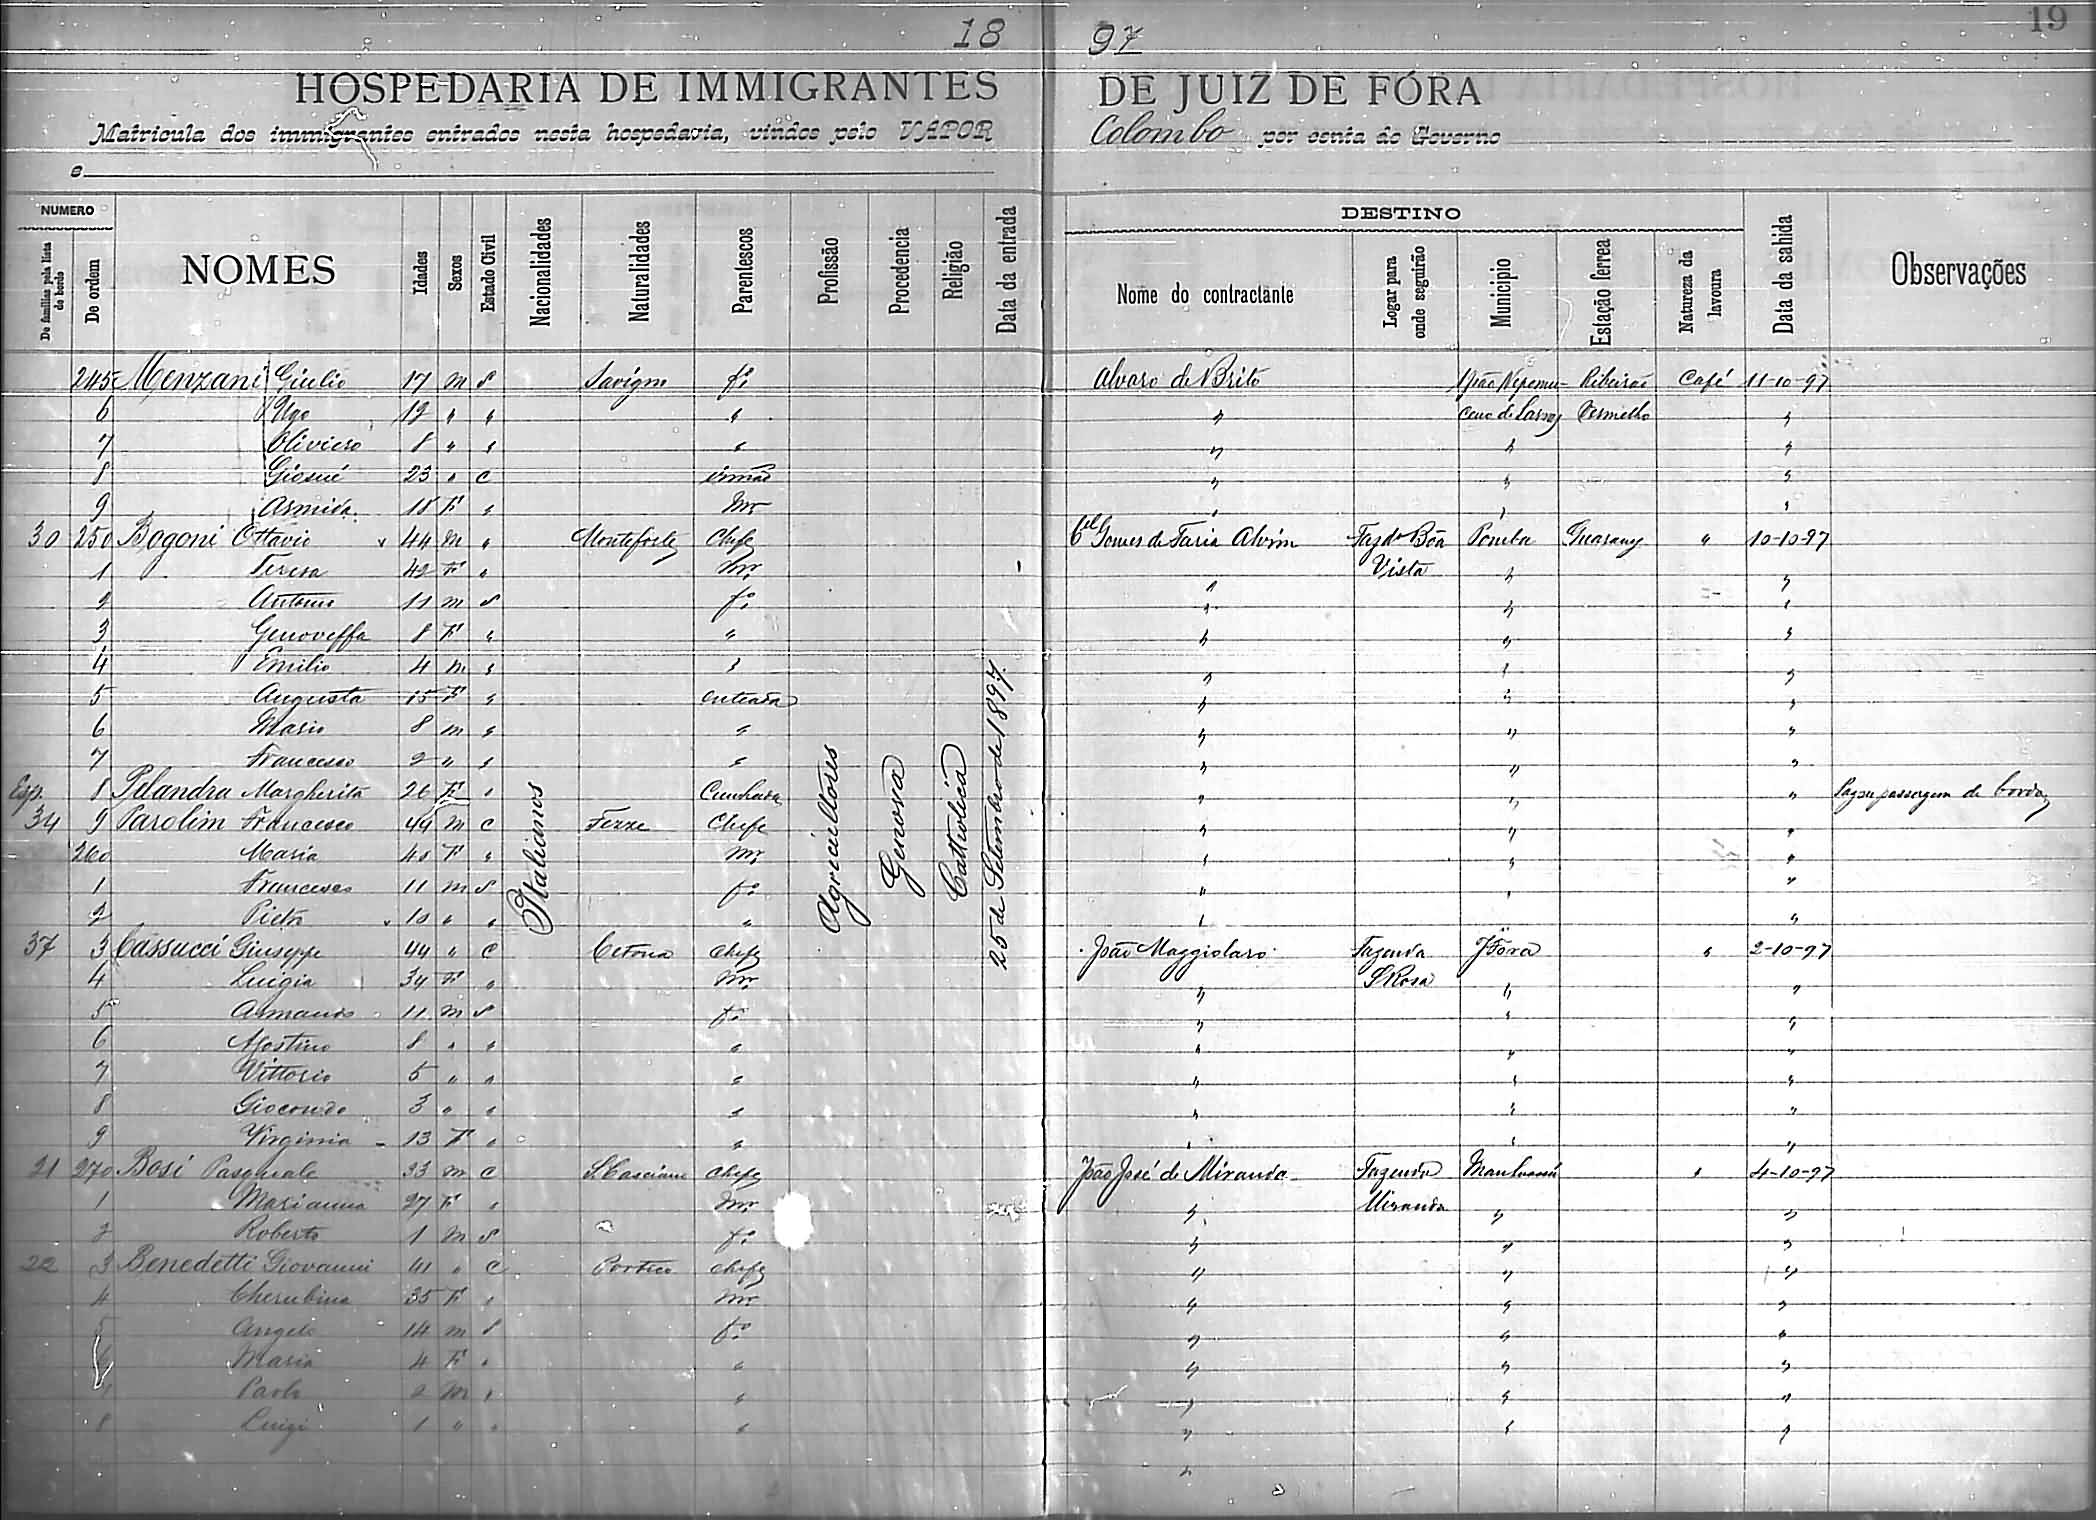 18 97 19
HOSPEDARIA DE IMMIGRANTES DE JUIZ DE FÓRA
Matricula dos immigrantes entrados nesta hospedaria, vindos pelo VAPOR Colombo por conta do Governo
e
NUMERO DESTINO
De familias pela lista de bordo De ordem NOMES Idades Sexos Estado Civil Nacionalidades Naturalidades Parentescos Profissão Procedencia Religião Data da entrada Nome do contractante Logar para onde seguirão Municipio Estação ferrea Natureza da lavoura Data da sahida Observações
245 Menzani Giulio 17 m s Savigno fo Alvaro de Brito Ribeirão Café 11-10-97
6 Ugo 12 " " " " Vermelho "
7 Oliviero 8 " " " " " "
8 Giosué 23 " C irmão " " "
9 Armida 18 F " mr " " "
30 250 Bogoni Ottavio 44 m " Monteforte Chefe Cel Gomes de Faria Alvim Fazda Bôa Pomba Guarany " 10-10-97
1 Teresa 42 F " mr " Vista " "
2 Antonio 11 m s fo " " "
3 Genoveffa 8 F " " " " "
4 Emilio 4 m " " " " "
5 Augusta 15 F " enteada " " "
6 Mario 8 m " " " " "
7 Francesco 2 " " " " " "
Esp. 8 Pelandra Margherita 26 F " Cunhada " " " Pagou passagem de bordo
34 9 Parolim Francesco 44 m C Fezze Chefe " " "
260 Maria 40 F " mr " " "
1 Francesco 11 m s fo " " "
2 Pietro 10 " " " " "
Italianos Agricultores Genova Catholica 25 de Setembro de 1897
37 3 Cassucci Giuseppe 44 " C Cetona Chefe João Maggiolaro Fazenda J Fóra " 2-10-97
4 Luigia 34 F " mr " S Rosa " "
5 Armando 11 m s fo " " "
6 Agostino 8 " " " " " "
7 Vittorio 5 " " " " " "
8 Giocondo 3 " " " " " "
9 Virginia 13 F " " " " "
21 270 Bosi Pasquale 33 m C S. Casciano Chefe João José de Miranda Fazenda Manhuassú " 4-10-97
1 Marianna 27 F " mr " Miranda " "
2 Roberto 1 m s fo " " "
22 3 Benedetti Giovanni 41 " C Portico Chefe " " "
4 Cherubina 35 F " mr " " "
5 Angelo 14 m s fo " " "
Maria 4 F " " " " "
Paolo 2 m " " " " "
8 Luigi 1 " " " " " "
"